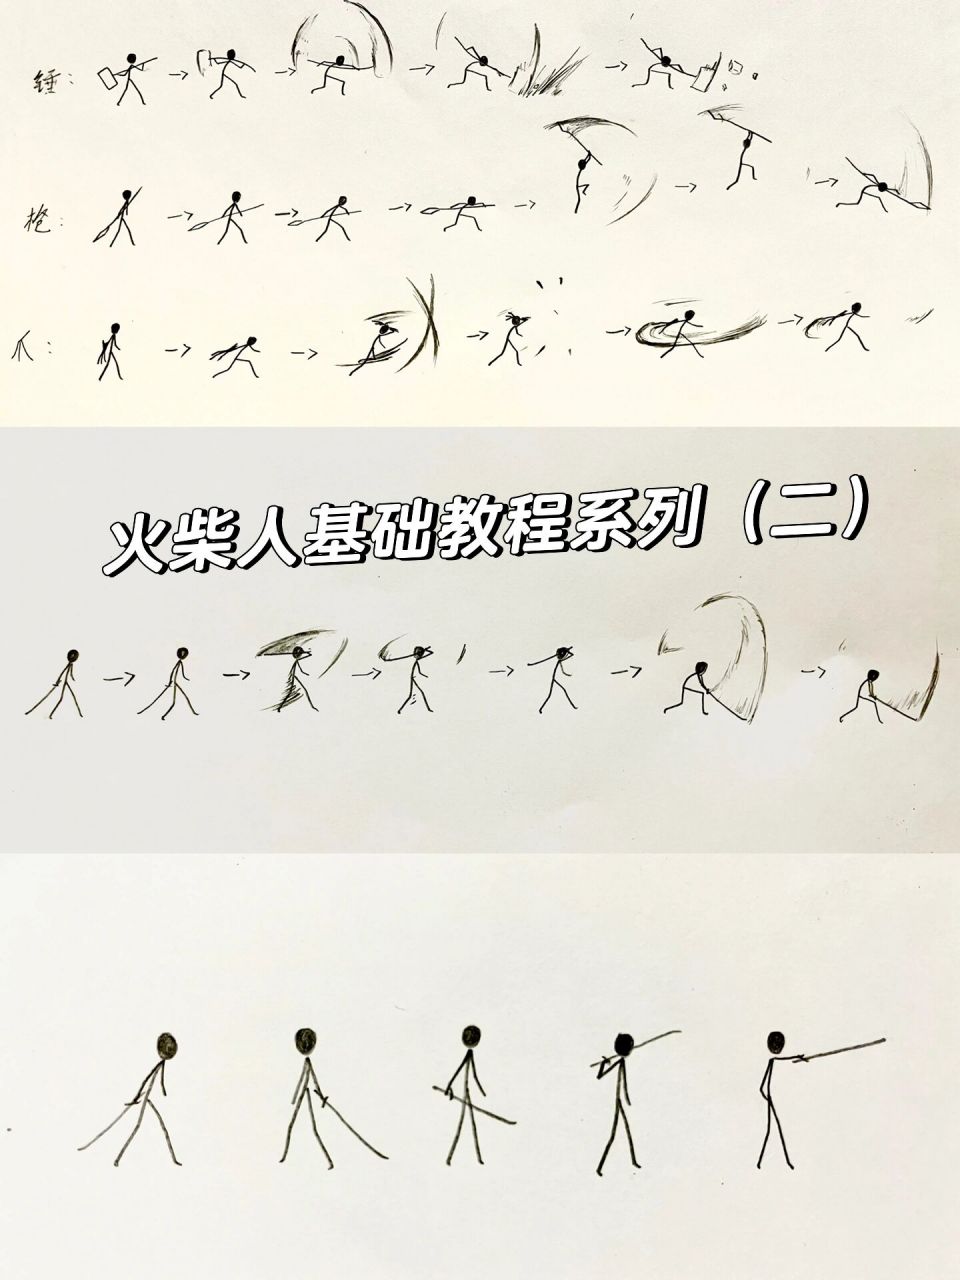 锤：
枪：
爪：
火柴人基础教程系列（二）